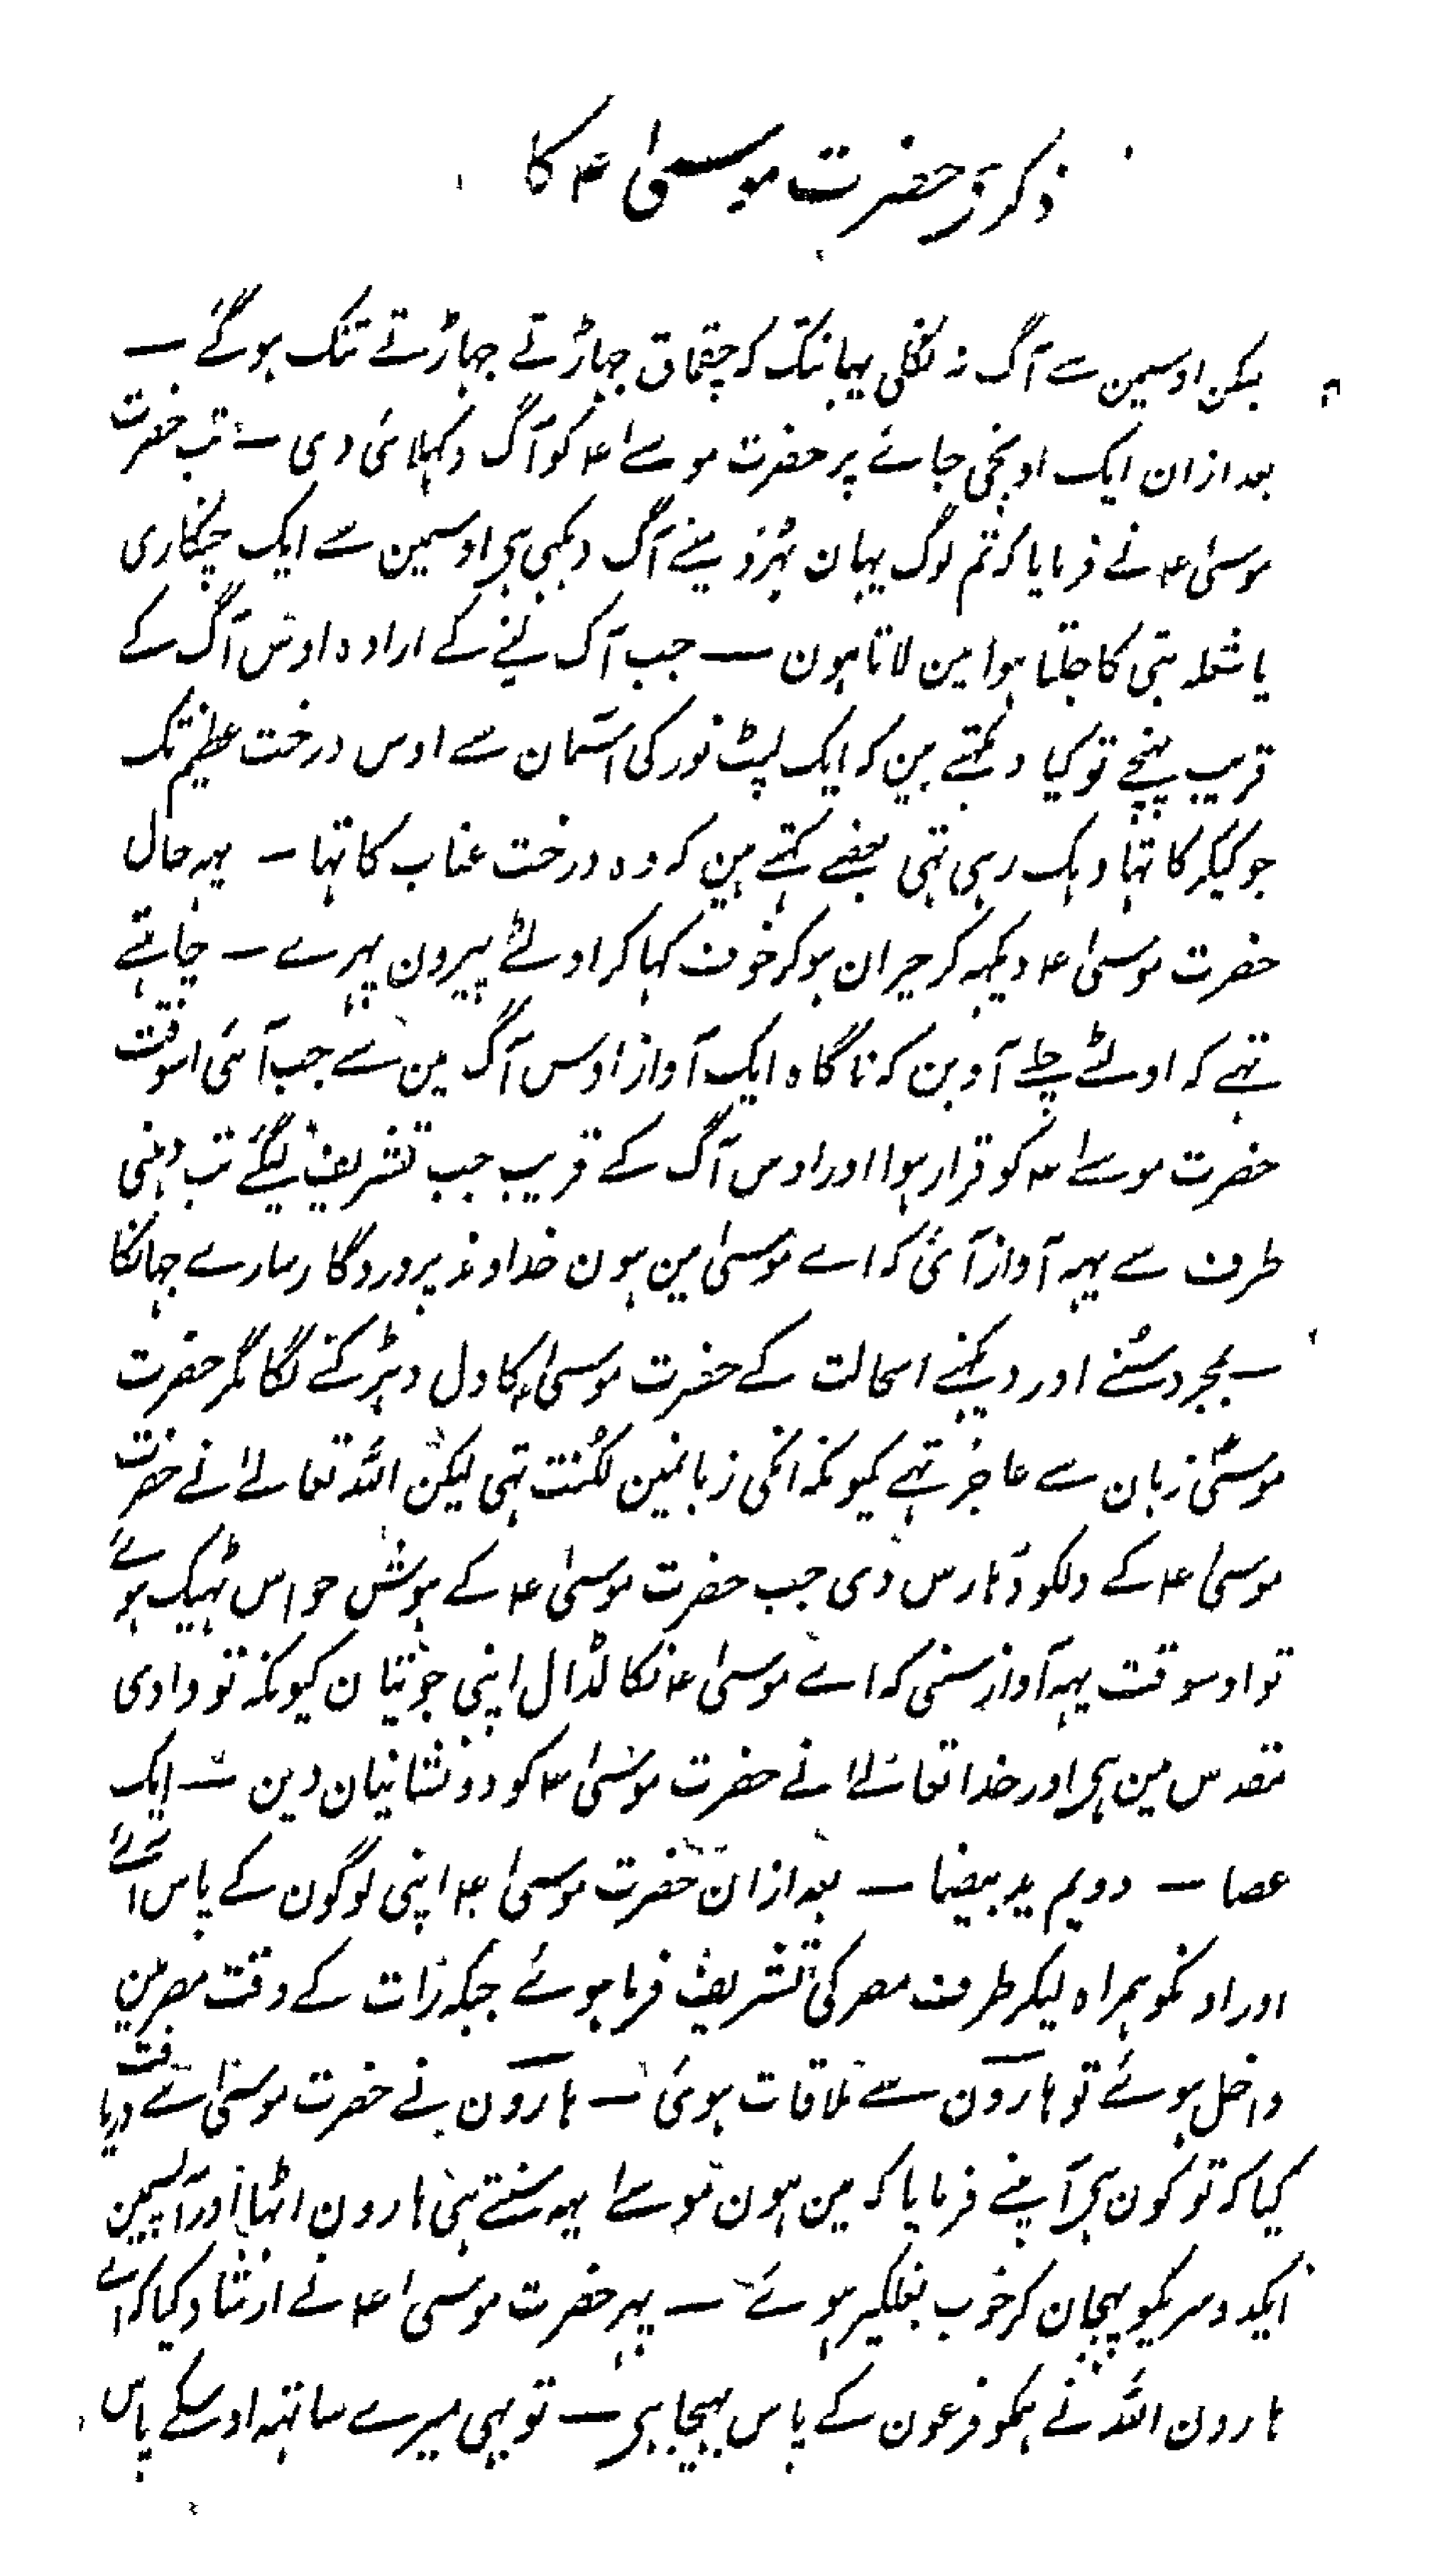 ذکر حضرت موسیٰ ۴ کا
لیکن اوسیمن سے آگ نہ نکلی یہانتک کہ چقماق جہاڑتے جہاڑتے تنگ ہوگئے —
بعد ازان ایک اونچی جائے پر حضرت موسےٰ ۴ کو آگ دکہلائی دی — تب حضرت
موسیٰ ۴ نے فرمایا کہ تم لوگ یہان ٹہرو مینے آگ دیکہی ہی اوسمین سے ایک چنگاری
یا شعلہ بتی کا جلتا ہوا مین لاتا ہون — جب آگ لینے کے ارادہ اوس آگ کے
قریب پہنچے تو کیا دیکہتے ہین کہ ایک لپٹ نور کی آسمان سے اوس درخت عظیم تک
جو کیکر کا تہا دہک رہی تہی بعضے کہتے ہین کہ وہ درخت عناب کا تہا — یہہ حال
حضرت موسیٰ ۴ دیکہہ کر حیران ہوکر خوف کہا کر اولٹے پیرون پہرے — چاہتے
تہے کہ اولٹے چلے آوین کہ ناگاہ ایک آواز اوس آگ مین سے جب آئی اسوقت
حضرت موسےٰ ۴ کو قرار ہوا اور اوس آگ کے قریب جب تشریف لیگئے تب دہنی
طرف سے یہہ آواز آئی کہ اے موسیٰ مین ہون خداوند پروردگار سارے جہانکا
— بمجرد سننے اور دیکہنے اسحالت کے حضرت موسیٰ ۴ کا دل دہڑکنے لگا مگر حضرت
موسیٰ زبان سے عاجز تہے کیونکہ انکی زبانمین لکنت تہی لیکن اللہ تعالےٰ نے حضرت
موسیٰ ۴ کے دلکو ڈہارس دی جب حضرت موسیٰ ۴ کے ہوش حواس ٹہیک ہوئے
تو اوسوقت یہہ آواز سنی کہ اے موسیٰ ۴ نکالڈال اپنی جوتیان کیونکہ تو وادی
مقدس مین ہی اور خدا تعالےٰ نے حضرت موسیٰ ۴ کو دو نشانیان دین — ایک
عصا — دویم ید بیضا — بعد ازان حضرت موسیٰ ۴ اپنی لوگون کے پاس آئے
اور اونکو ہمراہ لیکر طرف مصر کی تشریف فرما ہوئے جبکہ رات کے وقت مصر مین
داخل ہوئے تو ہارون سے ملاقات ہوئی — ہارون نے حضرت موسیٰ سے دریافت
کیا کہ تو کون ہی آپنے فرمایا کہ مین ہون موسےٰ یہہ سنتے ہی ہارون اٹہا اور آپسمین
ایکدوسریکو پہچان کر خوب بغلگیر ہوئے — پہر حضرت موسیٰ ۴ نے ارشاد کیا کہ اے
ہارون اللہ نے ہمکو فرعون کے پاس بہیجا ہی — تو بہی میرے ساتہہ اوسکے پاس